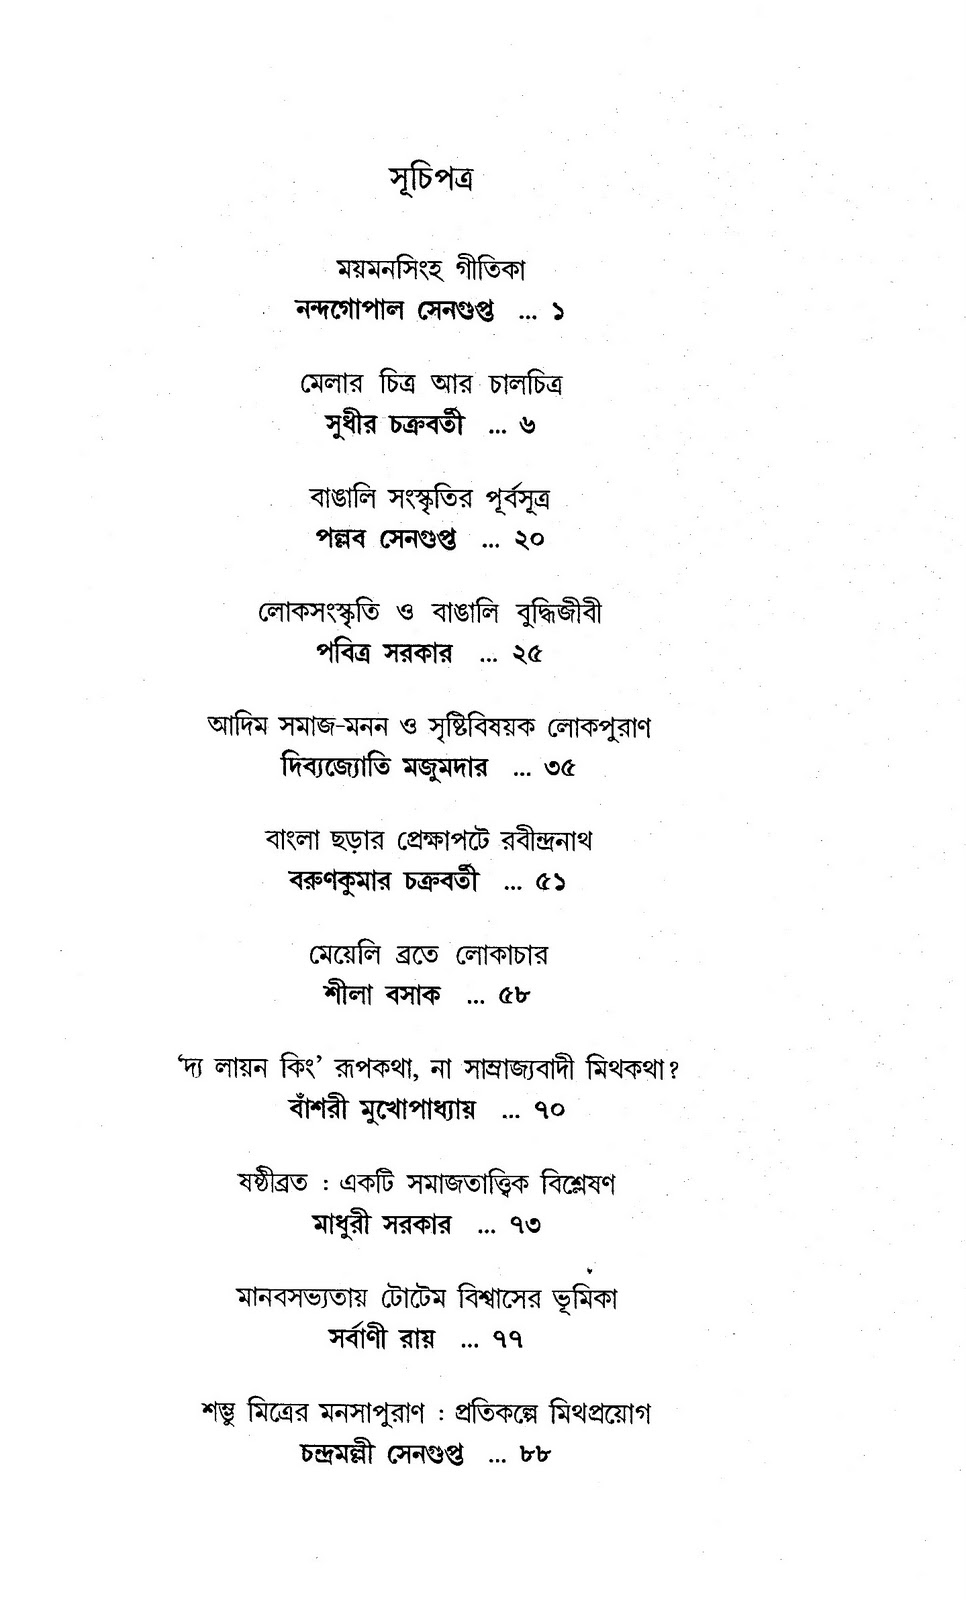 সূচিপত্র
ময়মনসিংহ গীতিকা
নন্দগোপাল সেনগুপ্ত ... ১
মেলার চিত্র আর চালচিত্র
সুধীর চক্রবর্তী ... ৬
বাঙালি সংস্কৃতির পূর্বসূত্র
পল্লব সেনগুপ্ত ... ২০
লোকসংস্কৃতি ও বাঙালি বুদ্ধিজীবী
পবিত্র সরকার ... ২৫
আদিম সমাজ-মনন ও সৃষ্টিবিষয়ক লোকপুরাণ
দিব্যজ্যোতি মজুমদার ... ৩৫
বাংলা ছড়ার প্রেক্ষাপটে রবীন্দ্রনাথ
বরুণকুমার চক্রবর্তী ... ৫১
মেয়েলি ব্রতে লোকাচার
শীলা বসাক ... ৫৮
‘দ্য লায়ন কিং’ রূপকথা, না সাম্রাজ্যবাদী মিথকথা?
বাঁশরী মুখোপাধ্যায় ... ৭০
ষষ্ঠীব্রত : একটি সমাজতাত্ত্বিক বিশ্লেষণ
মাধুরী সরকার ... ৭৩
মানবসভ্যতায় টোটেম বিশ্বাসের ভূমিকা
সর্বাণী রায় ... ৭৭
শম্ভু মিত্রের মনসাপুরাণ : প্রতিকল্পে মিথপ্রয়োগ
চন্দ্রমল্লী সেনগুপ্ত ... ৮৮